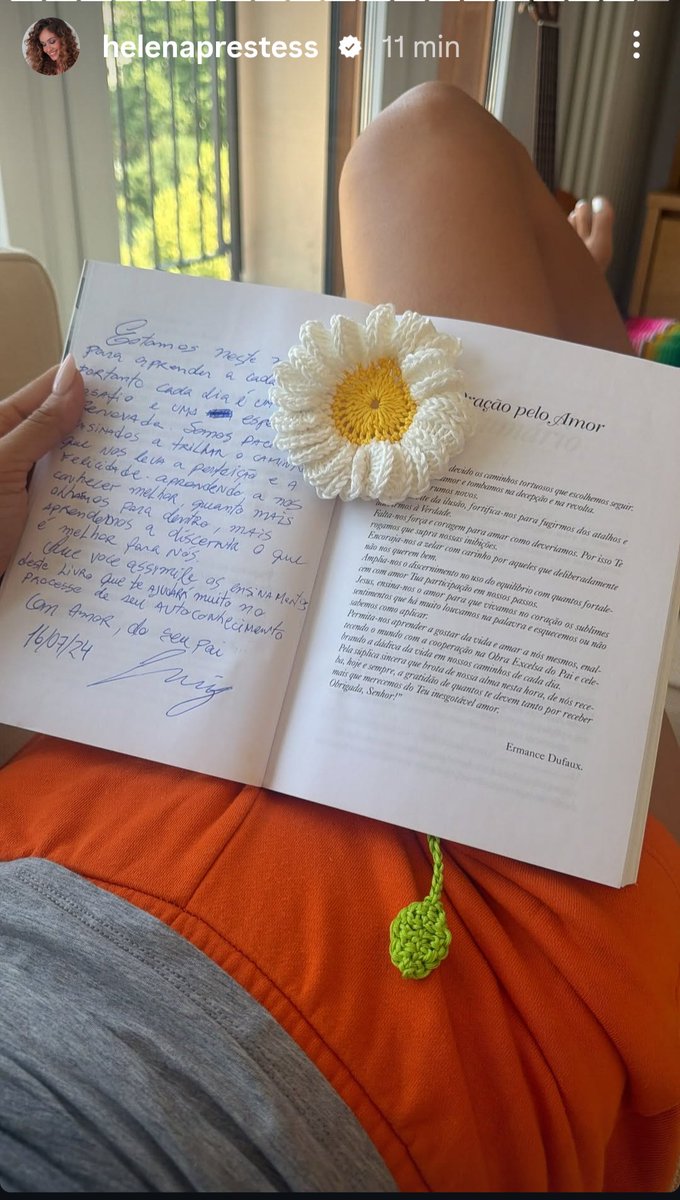 helenaprestess 11 min
Estamos neste
para aprender a cada
portanto cada dia é um
desafio e uma
renovada. Somos
ensinados a trilhar o caminho
que nos leva a perfeição e a
felicidade. aprendendo, a nos
conhecer melhor, quanto mais
olhamos para dentro, mais
aprendemos a discernir o que
é melhor para nós.
Que você assimile os ensinamentos
deste livro que te ajudará muito no
processo de seu autoconhecimento
com amor, do seu Pai
16/07/24
Oração pelo Amor
devido os caminhos tortuosos que escolhemos seguir.
amor e tombamos na decepção e na revolta.
rumos novos.
te da ilusão, fortifica-nos para fugirmos dos atalhos e
a Verdade.
Falta-nos força e coragem para amar como deveríamos. Por isso Te
rogamos que supra nossas inibições.
Encoraja-nos a zelar com carinho por aqueles que deliberadamente
não nos querem bem.
Amplia-nos o discernimento no uso do equilíbrio com quantos fortale-
cem com amor Tua participação em nossos passos.
Jesus, ensina-nos o amor para que vivamos no coração os sublimes
sentimentos que há muito louvamos na palavra e esquecemos ou não
sabemos como aplicar.
Permita-nos aprender a gostar da vida e amar a nós mesmos, enal-
tecendo o mundo com a cooperação na Obra Excelsa do Pai e cele-
brando a dádiva da vida em nossos caminhos de cada dia.
Pela súplica sincera que brota de nossa alma nesta hora, de nós rece-
ba, hoje e sempre, a gratidão de quantos te devem tanto por receber
mais que merecemos do Teu inesgotável amor.
Obrigada, Senhor!"
Ermance Dufaux.